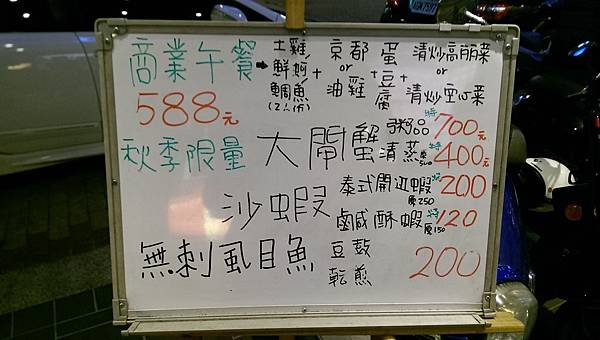 商業午餐➡土雞 鮮蚵 鯛魚(2人份)+京都or油雞+蛋+豆腐 清炒高麗菜or清炒空心菜
588元
秋季限量 大閘蟹 粥品 特700元
清蒸 特400元
沙蝦 泰式開迎蝦 特200 原250
鹹酥蝦 特120 原150
無刺虱目魚 豆豉 乾煎 200